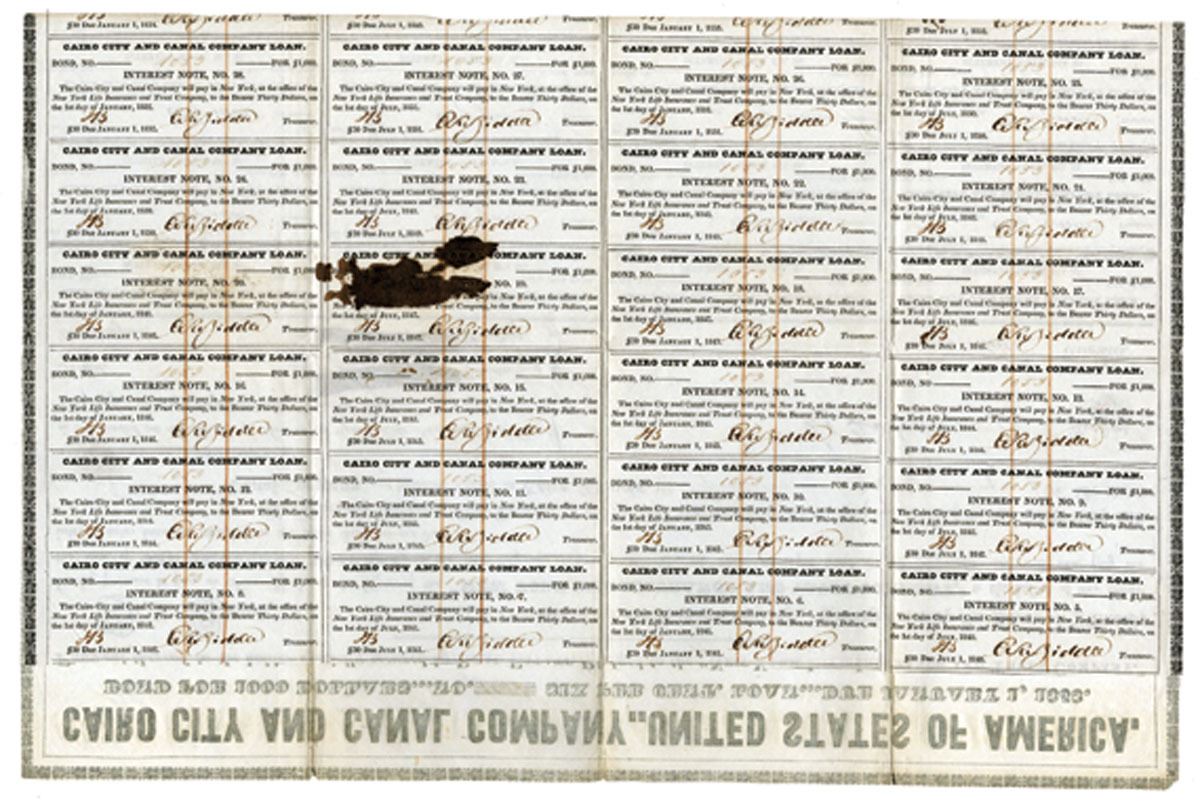 CAIRO CITY AND CANAL COMPANY LOAN.
BOND, NO. 1053 FOR $1,000.
INTEREST NOTE, NO. 28.
The Cairo City and Canal Company will pay in New York, at the office of the
New York Life Insurance and Trust Company, to the Bearer Thirty Dollars, on
the 1st day of JANUARY,
$30 DUE JANUARY 1, Treasurer.
CAIRO CITY AND CANAL COMPANY LOAN.
BOND, NO. 1053 FOR $1,000.
INTEREST NOTE, NO. 27.
The Cairo City and Canal Company will pay in New York, at the office of the
New York Life Insurance and Trust Company, to the Bearer Thirty Dollars, on
the 1st day of JULY,
$30 DUE JULY 1, Treasurer.
CAIRO CITY AND CANAL COMPANY LOAN.
BOND, NO. 1053 FOR $1,000.
INTEREST NOTE, NO. 26.
The Cairo City and Canal Company will pay in New York, at the office of the
New York Life Insurance and Trust Company, to the Bearer Thirty Dollars, on
the 1st day of JANUARY,
$30 DUE JANUARY 1, Treasurer.
CAIRO CITY AND CANAL COMPANY LOAN.
BOND, NO. 1053 FOR $1,000.
INTEREST NOTE, NO. 25.
The Cairo City and Canal Company will pay in New York, at the office of the
New York Life Insurance and Trust Company, to the Bearer Thirty Dollars, on
the 1st day of JULY,
$30 DUE JULY 1, Treasurer.
CAIRO CITY AND CANAL COMPANY LOAN.
BOND, NO. 1053 FOR $1,000.
INTEREST NOTE, NO. 24.
The Cairo City and Canal Company will pay in New York, at the office of the
New York Life Insurance and Trust Company, to the Bearer Thirty Dollars, on
the 1st day of JANUARY,
$30 DUE JANUARY 1, Treasurer.
CAIRO CITY AND CANAL COMPANY LOAN.
BOND, NO. 1053 FOR $1,000.
INTEREST NOTE, NO. 23.
The Cairo City and Canal Company will pay in New York, at the office of the
New York Life Insurance and Trust Company, to the Bearer Thirty Dollars, on
the 1st day of JULY,
$30 DUE JULY 1, Treasurer.
CAIRO CITY AND CANAL COMPANY LOAN.
BOND, NO. 1053 FOR $1,000.
INTEREST NOTE, NO. 22.
The Cairo City and Canal Company will pay in New York, at the office of the
New York Life Insurance and Trust Company, to the Bearer Thirty Dollars, on
the 1st day of JANUARY,
$30 DUE JANUARY 1, Treasurer.
CAIRO CITY AND CANAL COMPANY LOAN.
BOND, NO. 1053 FOR $1,000.
INTEREST NOTE, NO. 21.
The Cairo City and Canal Company will pay in New York, at the office of the
New York Life Insurance and Trust Company, to the Bearer Thirty Dollars, on
the 1st day of JULY,
$30 DUE JULY 1, Treasurer.
CAIRO CITY AND CANAL COMPANY LOAN.
BOND, NO. FOR $1,000.
INTEREST NOTE, NO. 20.
The Cairo City and Canal Company will pay in New York, at the office of the
New York Life Insurance and Trust Company, to the Bearer Thirty Dollars, on
the 1st day of JANUARY,
$30 DUE JANUARY 1, Treasurer.
CAIRO CITY LOAN.
FOR $1,000.
NO. 19.
New York, at the office of the
New York Life Insurance and Trust Company, to the Bearer Thirty Dollars, on
the 1st day of JULY, 1847.
$30 DUE JULY 1, 1847. Treasurer.
CAIRO CITY AND CANAL COMPANY LOAN.
BOND, NO. 1053 FOR $1,000.
INTEREST NOTE, NO. 18.
The Cairo City and Canal Company will pay in New York, at the office of the
New York Life Insurance and Trust Company, to the Bearer Thirty Dollars, on
the 1st day of JANUARY, 1847.
$30 DUE JANUARY 1, 1847. Treasurer.
CAIRO CITY AND CANAL COMPANY LOAN.
BOND, NO. 1053 FOR $1,000.
INTEREST NOTE, NO. 17.
The Cairo City and Canal Company will pay in New York, at the office of the
New York Life Insurance and Trust Company, to the Bearer Thirty Dollars, on
the 1st day of JULY, 1846.
$30 DUE JULY 1, 1846. Treasurer.
CAIRO CITY AND CANAL COMPANY LOAN.
BOND, NO. 1053 FOR $1,000.
INTEREST NOTE, NO. 16.
The Cairo City and Canal Company will pay in New York, at the office of the
New York Life Insurance and Trust Company, to the Bearer Thirty Dollars, on
the 1st day of JANUARY, 1846.
$30 DUE JANUARY 1, 1846. Treasurer.
CAIRO CITY AND CANAL COMPANY LOAN.
BOND, NO. FOR $1,000.
INTEREST NOTE, NO. 15.
The Cairo City and Canal Company will pay in New York, at the office of the
New York Life Insurance and Trust Company, to the Bearer Thirty Dollars, on
the 1st day of JULY, 1845.
$30 DUE JULY 1, 1845. Treasurer.
CAIRO CITY AND CANAL COMPANY LOAN.
BOND, NO. 1053 FOR $1,000.
INTEREST NOTE, NO. 14.
The Cairo City and Canal Company will pay in New York, at the office of the
New York Life Insurance and Trust Company, to the Bearer Thirty Dollars, on
the 1st day of JANUARY, 1845.
$30 DUE JANUARY 1, 1845. Treasurer.
CAIRO CITY AND CANAL COMPANY LOAN.
BOND, NO. 1053 FOR $1,000.
INTEREST NOTE, NO. 13.
The Cairo City and Canal Company will pay in New York, at the office of the
New York Life Insurance and Trust Company, to the Bearer Thirty Dollars, on
the 1st day of JULY, 1844.
$30 DUE JULY 1, 1844. Treasurer.
CAIRO CITY AND CANAL COMPANY LOAN.
BOND, NO. 1053 FOR $1,000.
INTEREST NOTE, NO. 12.
The Cairo City and Canal Company will pay in New York, at the office of the
New York Life Insurance and Trust Company, to the Bearer Thirty Dollars, on
the 1st day of JANUARY, 1844.
$30 DUE JANUARY 1, 1844. Treasurer.
CAIRO CITY AND CANAL COMPANY LOAN.
BOND, NO. 1053 FOR $1,000.
INTEREST NOTE, NO. 11.
The Cairo City and Canal Company will pay in New York, at the office of the
New York Life Insurance and Trust Company, to the Bearer Thirty Dollars, on
the 1st day of JULY,
$30 DUE JULY 1, Treasurer.
CAIRO CITY AND CANAL COMPANY LOAN.
BOND, NO. 1053 FOR $1,000.
INTEREST NOTE, NO. 10.
The Cairo City and Canal Company will pay in New York, at the office of the
New York Life Insurance and Trust Company, to the Bearer Thirty Dollars, on
the 1st day of JANUARY,
$30 DUE JANUARY 1, Treasurer.
CAIRO CITY AND CANAL COMPANY LOAN.
BOND, NO. 1053 FOR $1,000.
INTEREST NOTE, NO. 9.
The Cairo City and Canal Company will pay in New York, at the office of the
New York Life Insurance and Trust Company, to the Bearer Thirty Dollars, on
the 1st day of JULY,
$30 DUE JULY 1, Treasurer.
CAIRO CITY AND CANAL COMPANY LOAN.
BOND, NO. 1053 FOR $1,000.
INTEREST NOTE, NO. 8.
The Cairo City and Canal Company will pay in New York, at the office of the
New York Life Insurance and Trust Company, to the Bearer Thirty Dollars, on
the 1st day of JANUARY,
$30 DUE JANUARY 1, Treasurer.
CAIRO CITY AND CANAL COMPANY LOAN.
BOND, NO. 1053 FOR $1,000.
INTEREST NOTE, NO. 7.
The Cairo City and Canal Company will pay in New York, at the office of the
New York Life Insurance and Trust Company, to the Bearer Thirty Dollars, on
the 1st day of JULY,
$30 DUE JULY 1, Treasurer.
CAIRO CITY AND CANAL COMPANY LOAN.
BOND, NO. 1053 FOR $1,000.
INTEREST NOTE, NO. 6.
The Cairo City and Canal Company will pay in New York, at the office of the
New York Life Insurance and Trust Company, to the Bearer Thirty Dollars, on
the 1st day of JANUARY,
$30 DUE JANUARY 1, Treasurer.
CAIRO CITY AND CANAL COMPANY LOAN.
BOND, NO. 1053 FOR $1,000.
INTEREST NOTE, NO. 5.
The Cairo City and Canal Company will pay in New York, at the office of the
New York Life Insurance and Trust Company, to the Bearer Thirty Dollars, on
the 1st day of JULY,
$30 DUE JULY 1, Treasurer.
BOND FOR 1000 DOLLARS.....NO. SIX PER CENT. LOAN.....DUE JANUARY 1,
CAIRO CITY AND CANAL COMPANY,..UNITED STATES OF AMERICA.